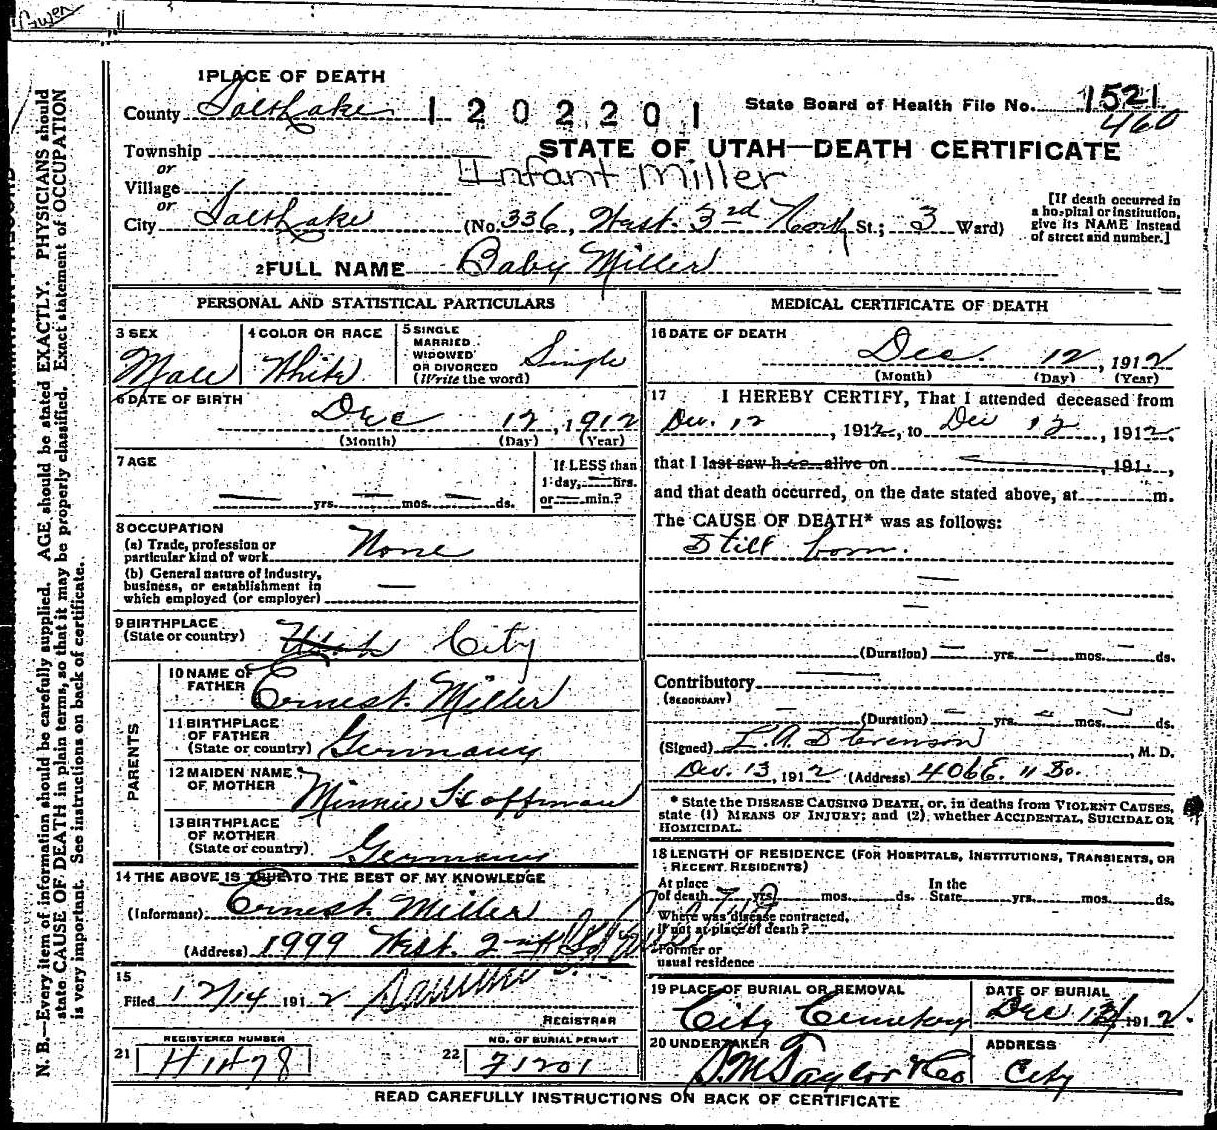 Gwen
1 PLACE OF DEATH
County Salt Lake 1202201 State Board of Health File No. 1521
460
Township
or
STATE OF UTAH—DEATH CERTIFICATE
Village
or
Infant Miller
City Salt Lake (No. 336, West 3rd North St.; 3 Ward)
[If death occurred in a hospital or institution, give its NAME instead of street and number.]
2 FULL NAME Baby Miller
PERSONAL AND STATISTICAL PARTICULARS
3 SEX
Male
4 COLOR OR RACE
White
5 SINGLE
MARRIED
WIDOWED
OR DIVORCED
(Write the word)
Single
6 DATE OF BIRTH
Dec 12, 1912
(Month) (Day) (Year)
7 AGE
— yrs. — mos. — ds.
If LESS than
1 day, — hrs.
or — min.?
8 OCCUPATION
(a) Trade, profession or
particular kind of work None
(b) General nature of industry,
business, or establishment in
which employed (or employer) —
9 BIRTHPLACE
(State or country) Utah City
PARENTS
10 NAME OF
FATHER Ernest Miller
11 BIRTHPLACE
OF FATHER
(State or country) Germany
12 MAIDEN NAME
OF MOTHER Minnie Hoffman
13 BIRTHPLACE
OF MOTHER
(State or country) Germany
14 THE ABOVE IS TRUE TO THE BEST OF MY KNOWLEDGE
(Informant) Ernest Miller
(Address) 1999 West 2nd So
15
Filed 12/14 1912
REGISTRAR
REGISTERED NUMBER
21 H1478
NO. OF BURIAL PERMIT
22 71201
MEDICAL CERTIFICATE OF DEATH
16 DATE OF DEATH
Dec. 12, 1912
(Month) (Day) (Year)
17 I HEREBY CERTIFY, That I attended deceased from
Dec. 12, 1912, to Dec 12, 1912,
that I last saw h alive on , 191 ,
and that death occurred, on the date stated above, at m.
The CAUSE OF DEATH* was as follows:
Still born.
—
—
(Duration) — yrs. — mos. — ds.
Contributory
(SECONDARY)
(Duration) — yrs. — mos. — ds.
(Signed) L. A. Stevenson, M. D.
Dec. 13, 1912 (Address) 406 E. 11 So.
* State the DISEASE CAUSING DEATH, or, in deaths from VIOLENT CAUSES,
state (1) MEANS OF INJURY; and (2), whether ACCIDENTAL, SUICIDAL OR
HOMICIDAL.
18 LENGTH OF RESIDENCE (FOR HOSPITALS, INSTITUTIONS, TRANSIENTS, OR
RECENT RESIDENTS)
At place
of death yrs. mos. ds. In the
State yrs. mos. ds.
Where was disease contracted,
if not at place of death?
Former or
usual residence
19 PLACE OF BURIAL OR REMOVAL
City Cemetery
DATE OF BURIAL
Dec 1912.
20 UNDERTAKER
S.M. Taylor & Co
ADDRESS
City
READ CAREFULLY INSTRUCTIONS ON BACK OF CERTIFICATE
N. B.—Every item of information should be carefully supplied. AGE should be stated EXACTLY. PHYSICIANS should
state CAUSE OF DEATH in plain terms, so that it may be properly classified. Exact statement of OCCUPATION
is very important. See instructions on back of certificate.